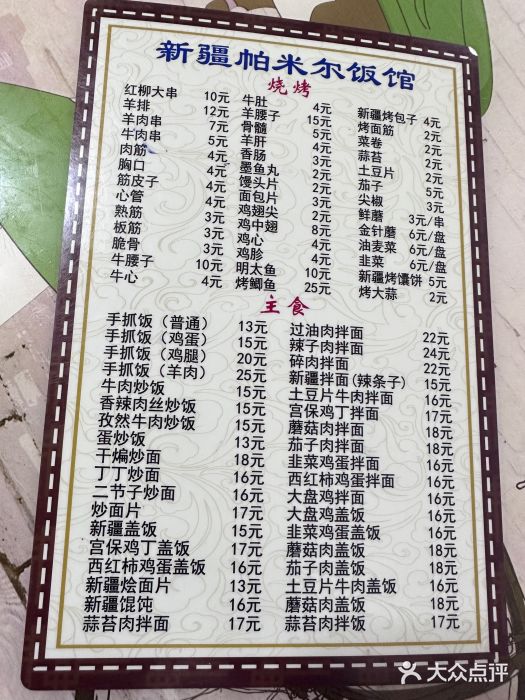 新疆帕米尔饭馆
烧烤
红柳大串 10元
羊排 12元
羊肉串 7元
牛肉串 5元
肉筋 4元
胸口 4元
筋皮子 4元
心管 4元
熟筋 3元
板筋 3元
脆骨 3元
牛腰子 10元
牛心 4元
牛肚 4元
羊腰子 15元
骨髓 5元
羊肝 4元
香肠 3元
墨鱼丸 2元
馒头片 2元
面包片 3元
鸡翅尖 2元
鸡中翅 8元
鸡心 4元
鸡胗 4元
明太鱼 10元
烤鲫鱼 25元
新疆烤包子 4元
烤面筋 2元
菜卷 2元
蒜苔 2元
土豆片 2元
茄子 5元
尖椒 2元
鲜蘑 3元/串
金针蘑 6元/盘
油麦菜 6元/盘
韭菜 6元/盘
新疆烤馕饼 5元
烤大蒜 2元
主食
手抓饭（普通） 13元
手抓饭（鸡蛋） 15元
手抓饭（鸡腿） 20元
手抓饭（羊肉） 25元
牛肉炒饭 15元
香辣肉丝炒饭 15元
孜然牛肉炒饭 15元
蛋炒饭 13元
干煸炒面 18元
丁丁炒面 16元
二节子炒面 16元
炒面片 17元
新疆盖饭 15元
宫保鸡丁盖饭 17元
西红柿鸡蛋盖饭 16元
新疆烩面片 13元
新疆馄饨 16元
蒜苔肉拌面 17元
过油肉拌面 22元
辣子肉拌面 24元
碎肉拌面 22元
新疆拌面(辣条子) 15元
土豆片牛肉拌面 16元
宫保鸡丁拌面 18元
蘑菇肉拌面 18元
茄子肉拌面 18元
韭菜鸡蛋拌面 16元
西红柿鸡蛋拌面 16元
大盘鸡拌面 16元
大盘鸡盖饭 17元
韭菜鸡蛋盖饭 16元
蘑菇肉盖饭 18元
茄子肉盖饭 18元
土豆片牛肉盖饭 16元
蘑菇肉盖饭 18元
蒜苔肉拌饭 17元
大众点评